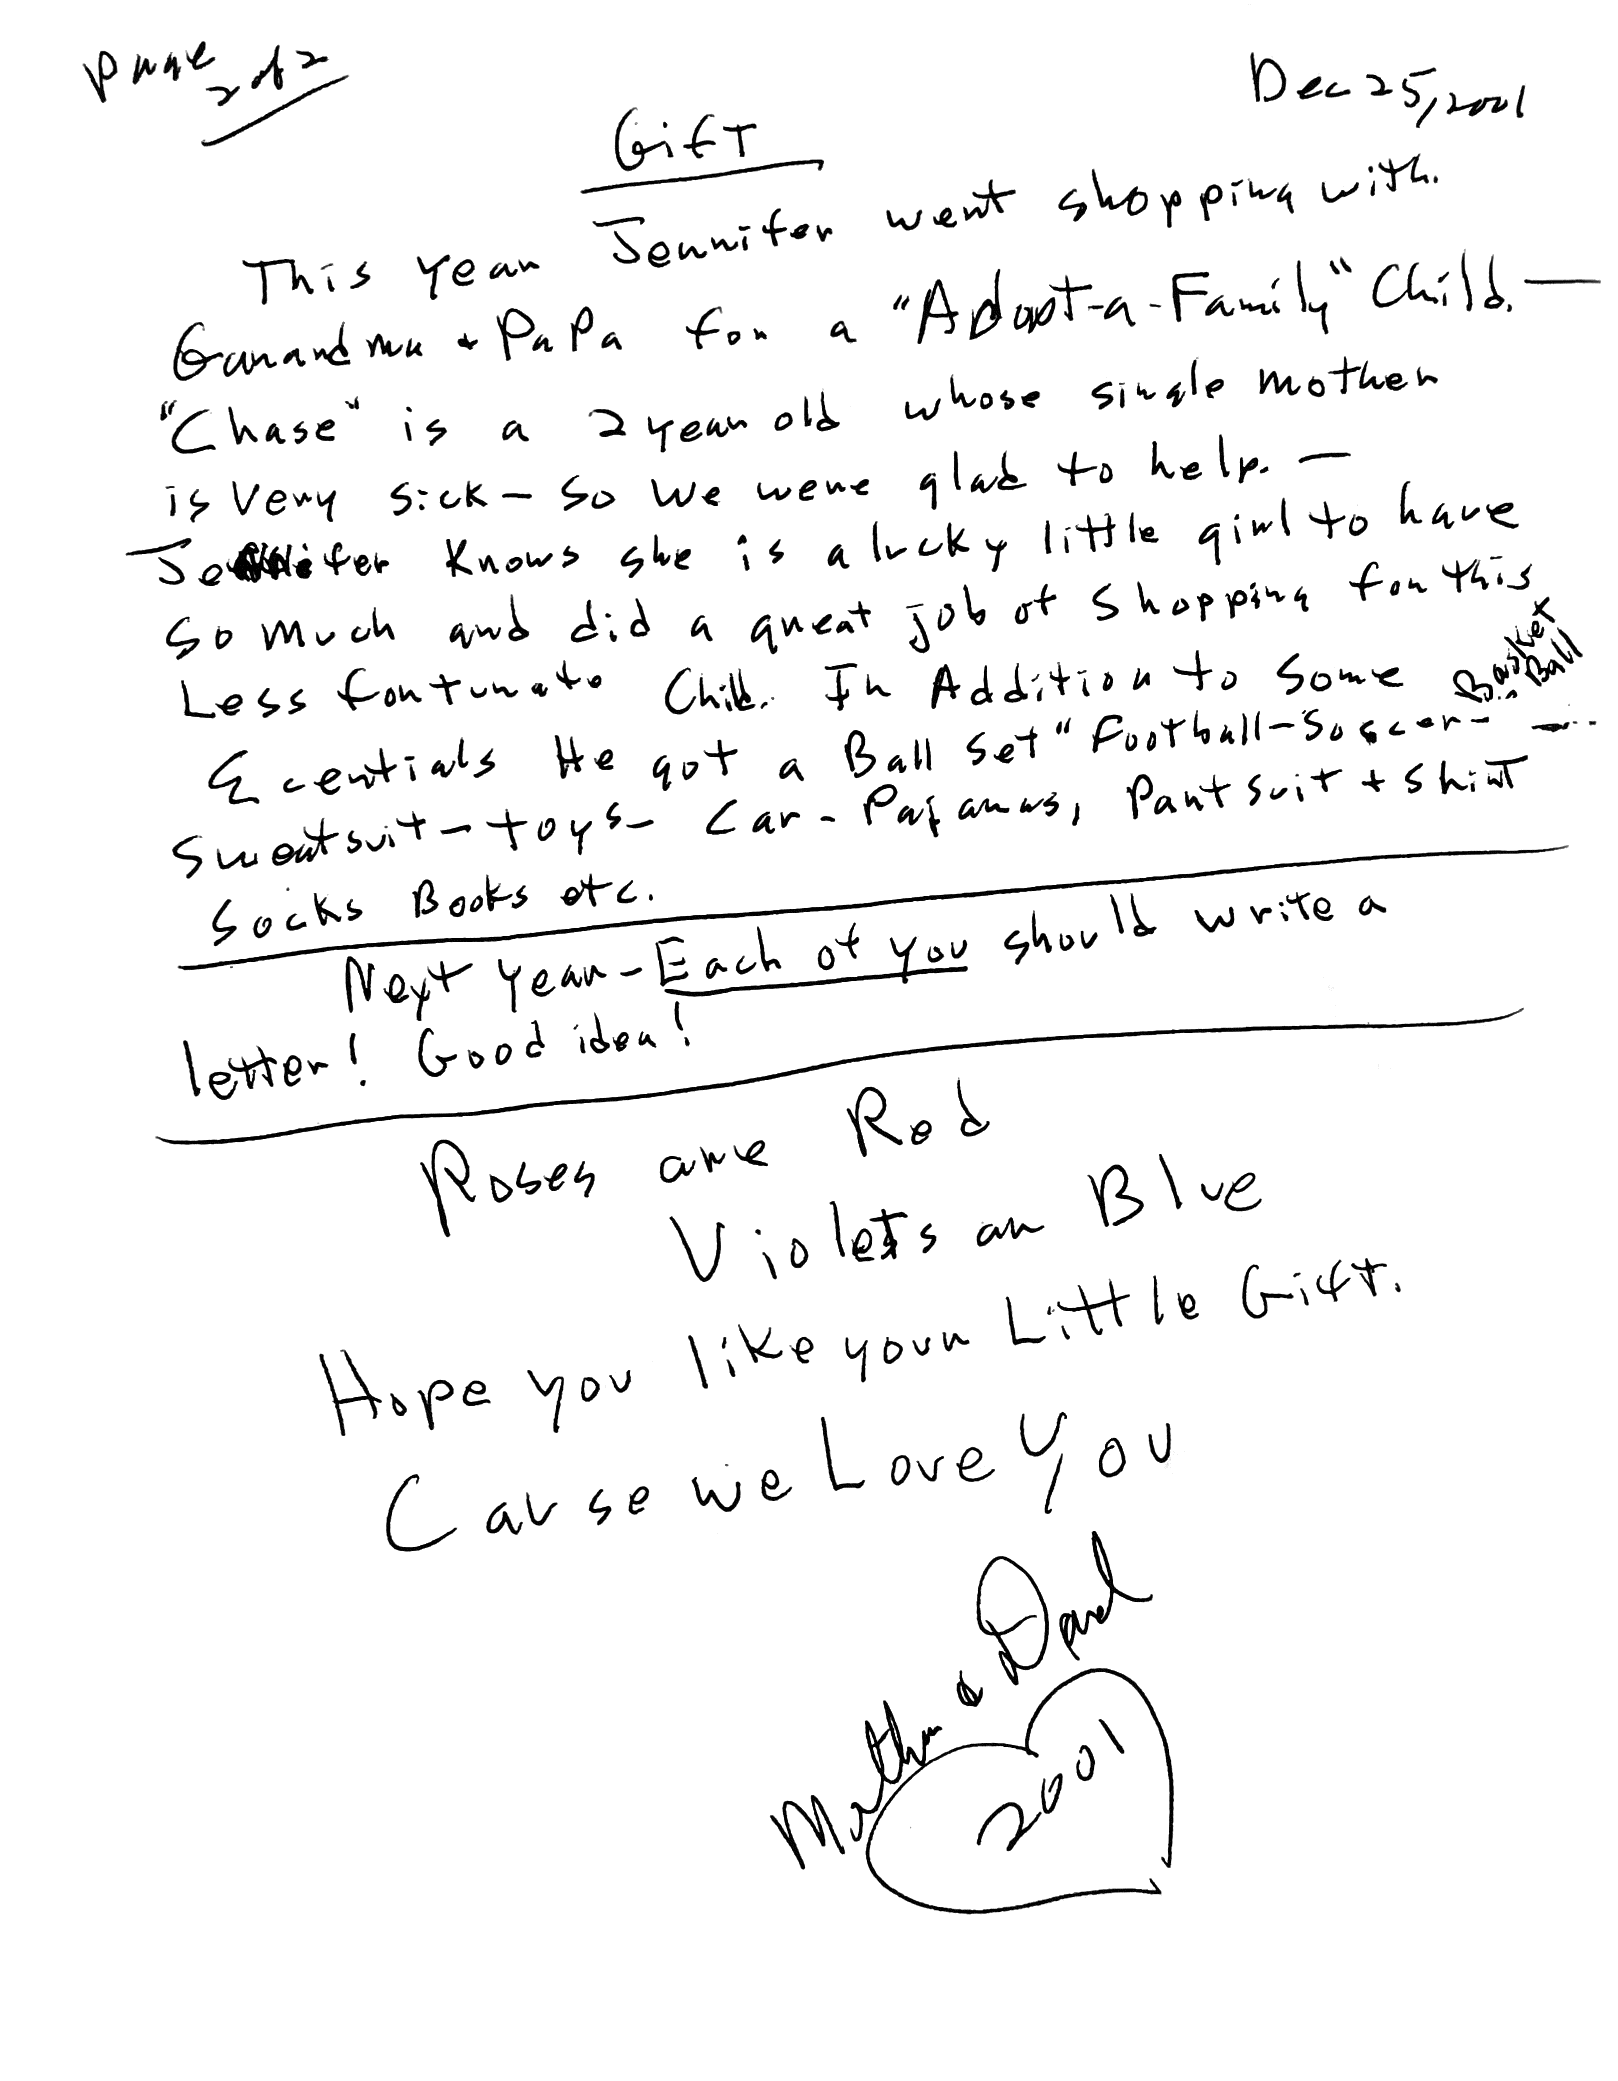 Page 2 of 2
Dec 25, 2001
Gift
This year Jennifer went shopping with.
Ganandma + PaPa for a "Adopt-a-Family" Child. —
"Chase" is a 2 year old whose single mother
is Very sick – So We were glad to help. —
Jennifer Knows she is a lucky little girl to have
so much and did a great job of shopping for this
Less fortunate Child. In Addition to some
Ecentials He got a Ball Set "Football-Soscer- Basket Ball —...
Sweatsuit – toys – Car – Pajamas, Pantsuit + Shirt
Socks Books etc.
Next year – Each of you should write a
letter! Good idea!
Roses are Red
Violets are Blue
Hope you like your Little Gift.
Cause we Love You
Martha & David
2001